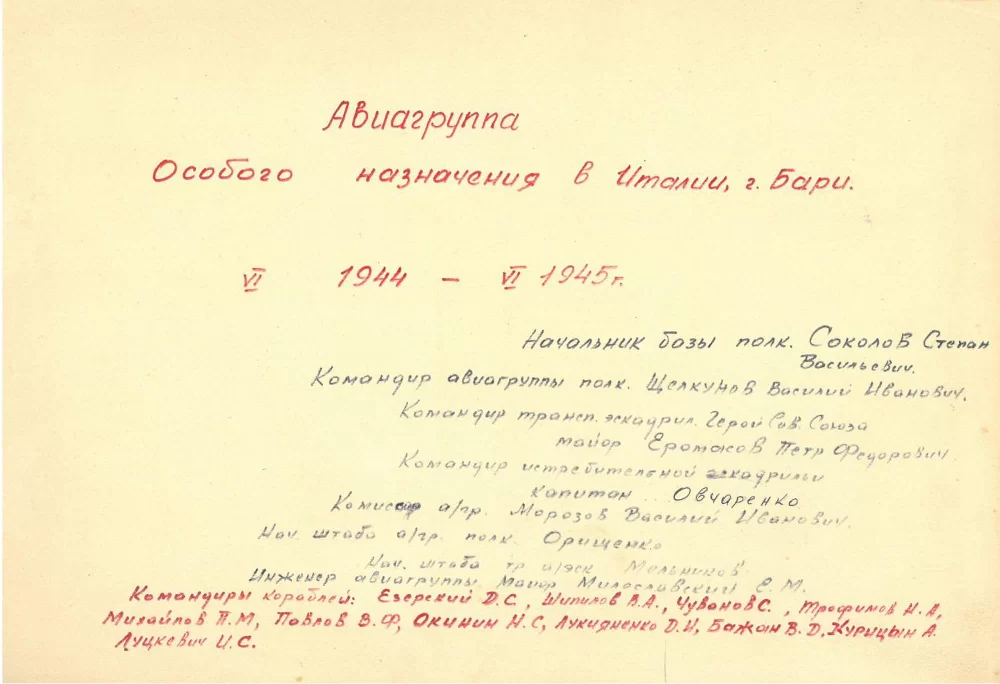 Авиагруппа
Особого назначения в Италии, г. Бари.
VI 1944 – VI 1945г.
Начальник базы полк. Соколов Степан
Васильевич.
Командир авиагруппы полк. Щелкунов Василий Иванович.
Командир трансп. эскадрил. Герой Сов. Союза
майор Еромасов Петр Федорович
Командир истребительной эскадрильи
капитан Овчаренко
Комиссар а/гр. Морозов Василий Иванович.
Нач. штаба а/гр. полк. Орищенко
Нач. штаба тр а/эск Мельников
Инженер авиагруппы майор Милославский Е.М.
Командиры кораблей: Езерский Д.С., Шипилов В.А., Чуванов С., Трофимов Н.А,
Михайлов П.М, Павлов В.Ф, Окинин Н.С, Лукияненко Д.И, Бажан В.Д, Курицын А.
Луцкевич И.С.